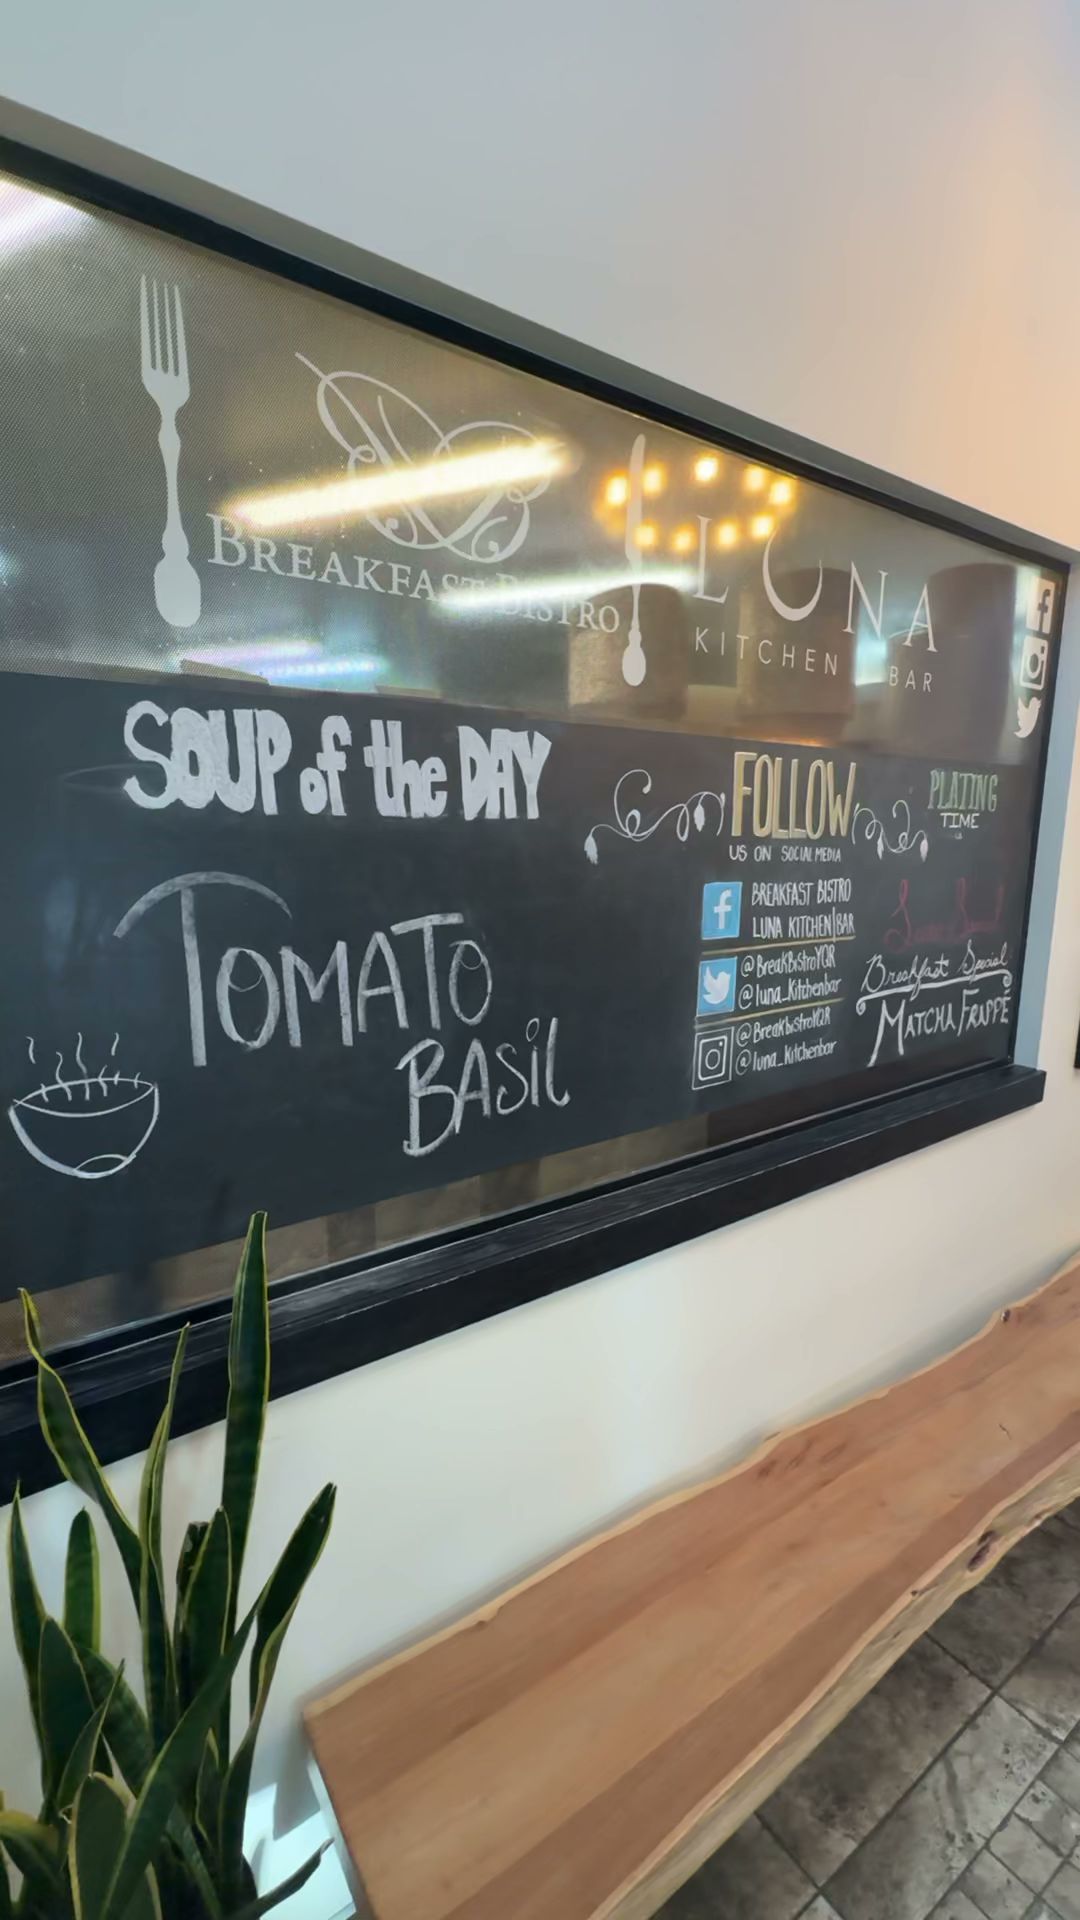 BREAKFAST BISTRO
LUNA
KITCHEN BAR
SOUP of the DAY
TOMATO
BASIL
FOLLOW
US ON SOCIAL MEDIA
BREAKFAST BISTRO
LUNA KITCHEN|BAR
@BreakBistroYQR
@luna_Kitchenbar
@BreakbistroYQR
@luna_Kitchenbar
PLATING
TIME
Breakfast Special
MATCHA FRAPPÉ